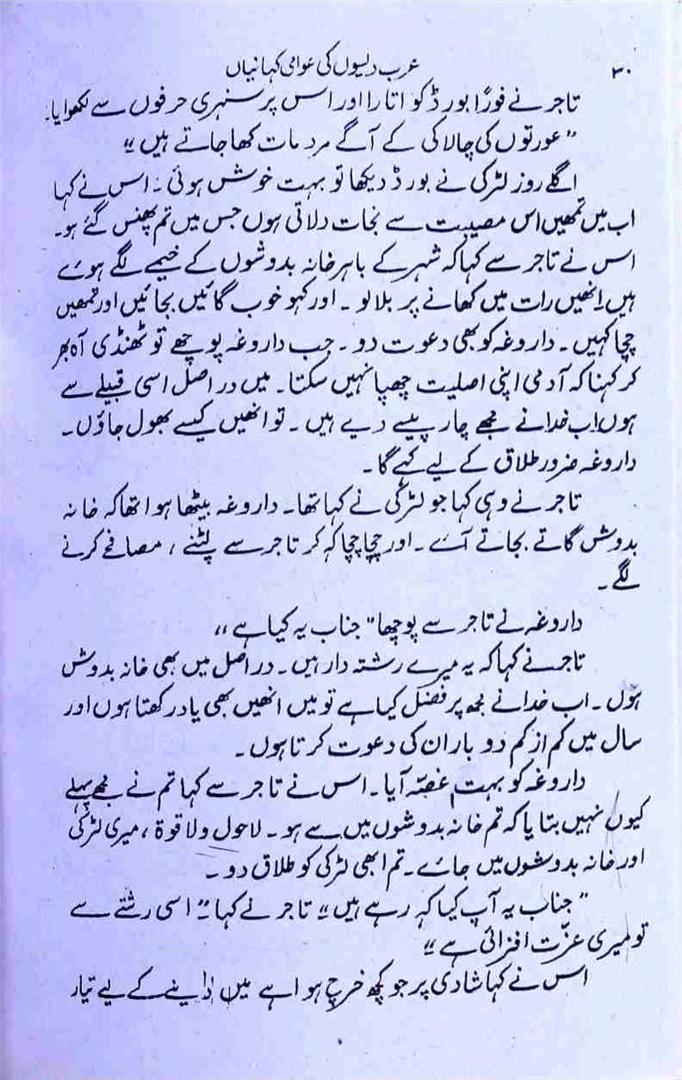 ۳۰
عرب دیسوں کی عوامی کہانیاں
تاجر نے فوراً بورڈ کو اتارا اور اس پر سنہری حرفوں سے لکھوایا۔
”عورتوں کی چالاکی کے آگے مرد مات کھا جاتے ہیں“
اگلے روز لڑکی نے بورڈ دیکھا تو بہت خوش ہوئی۔ اس نے کہا
اب میں تمھیں اس مصیبت سے نجات دلاتی ہوں جس میں تم پھنس گئے ہو۔
اس نے تاجر سے کہا کہ شہر کے باہر خانہ بدوشوں کے خیمے لگے ہوئے
ہیں انھیں رات میں کھانے پر بلا لو۔ اور کہو خوب گائیں بجائیں اور تمھیں
چچا کہیں۔ داروغہ کو بھی دعوت دو۔ جب داروغہ پوچھے تو ٹھنڈی آہ بھر
کر کہنا کہ آدمی اپنی اصلیت چھپا نہیں سکتا۔ میں دراصل اسی قبیلے سے
ہوں اب خدا نے مجھے چار پیسے دیے ہیں۔ تو انھیں کیسے بھول جاؤں۔
داروغہ ضرور طلاق کے لیے کہے گا۔
تاجر نے وہی کہا جو لڑکی نے کہا تھا۔ داروغہ بیٹھا ہوا تھا کہ خانہ
بدوش گاتے بجاتے آئے۔ اور چچا چچا کہہ کر تاجر سے لپٹنے، مصافحے کرنے
لگے۔
داروغہ نے تاجر سے پوچھا ”جناب یہ کیا ہے“
تاجر نے کہا کہ یہ میرے رشتہ دار ہیں۔ دراصل میں بھی خانہ بدوش
ہوں۔ اب خدا نے مجھ پر فضل کیا ہے تو میں انھیں بھی یاد رکھتا ہوں اور
سال میں کم از کم دو بار ان کی دعوت کرتا ہوں۔
داروغہ کو بہت غصّہ آیا۔ اس نے تاجر سے کہا تم نے مجھے پہلے
کیوں نہیں بتایا کہ تم خانہ بدوشوں میں سے ہو۔ لاحول ولا قوۃ، میری لڑکی
اور خانہ بدوشوں میں جائے۔ تم ابھی لڑکی کو طلاق دو۔
”جناب یہ آپ کیا کہہ رہے ہیں“ تاجر نے کہا ”اسی رشتے سے
تو میری عزّت افزائی ہے“
اس نے کہا شادی پر جو کچھ خرچ ہوا ہے میں دینے کے لیے تیار